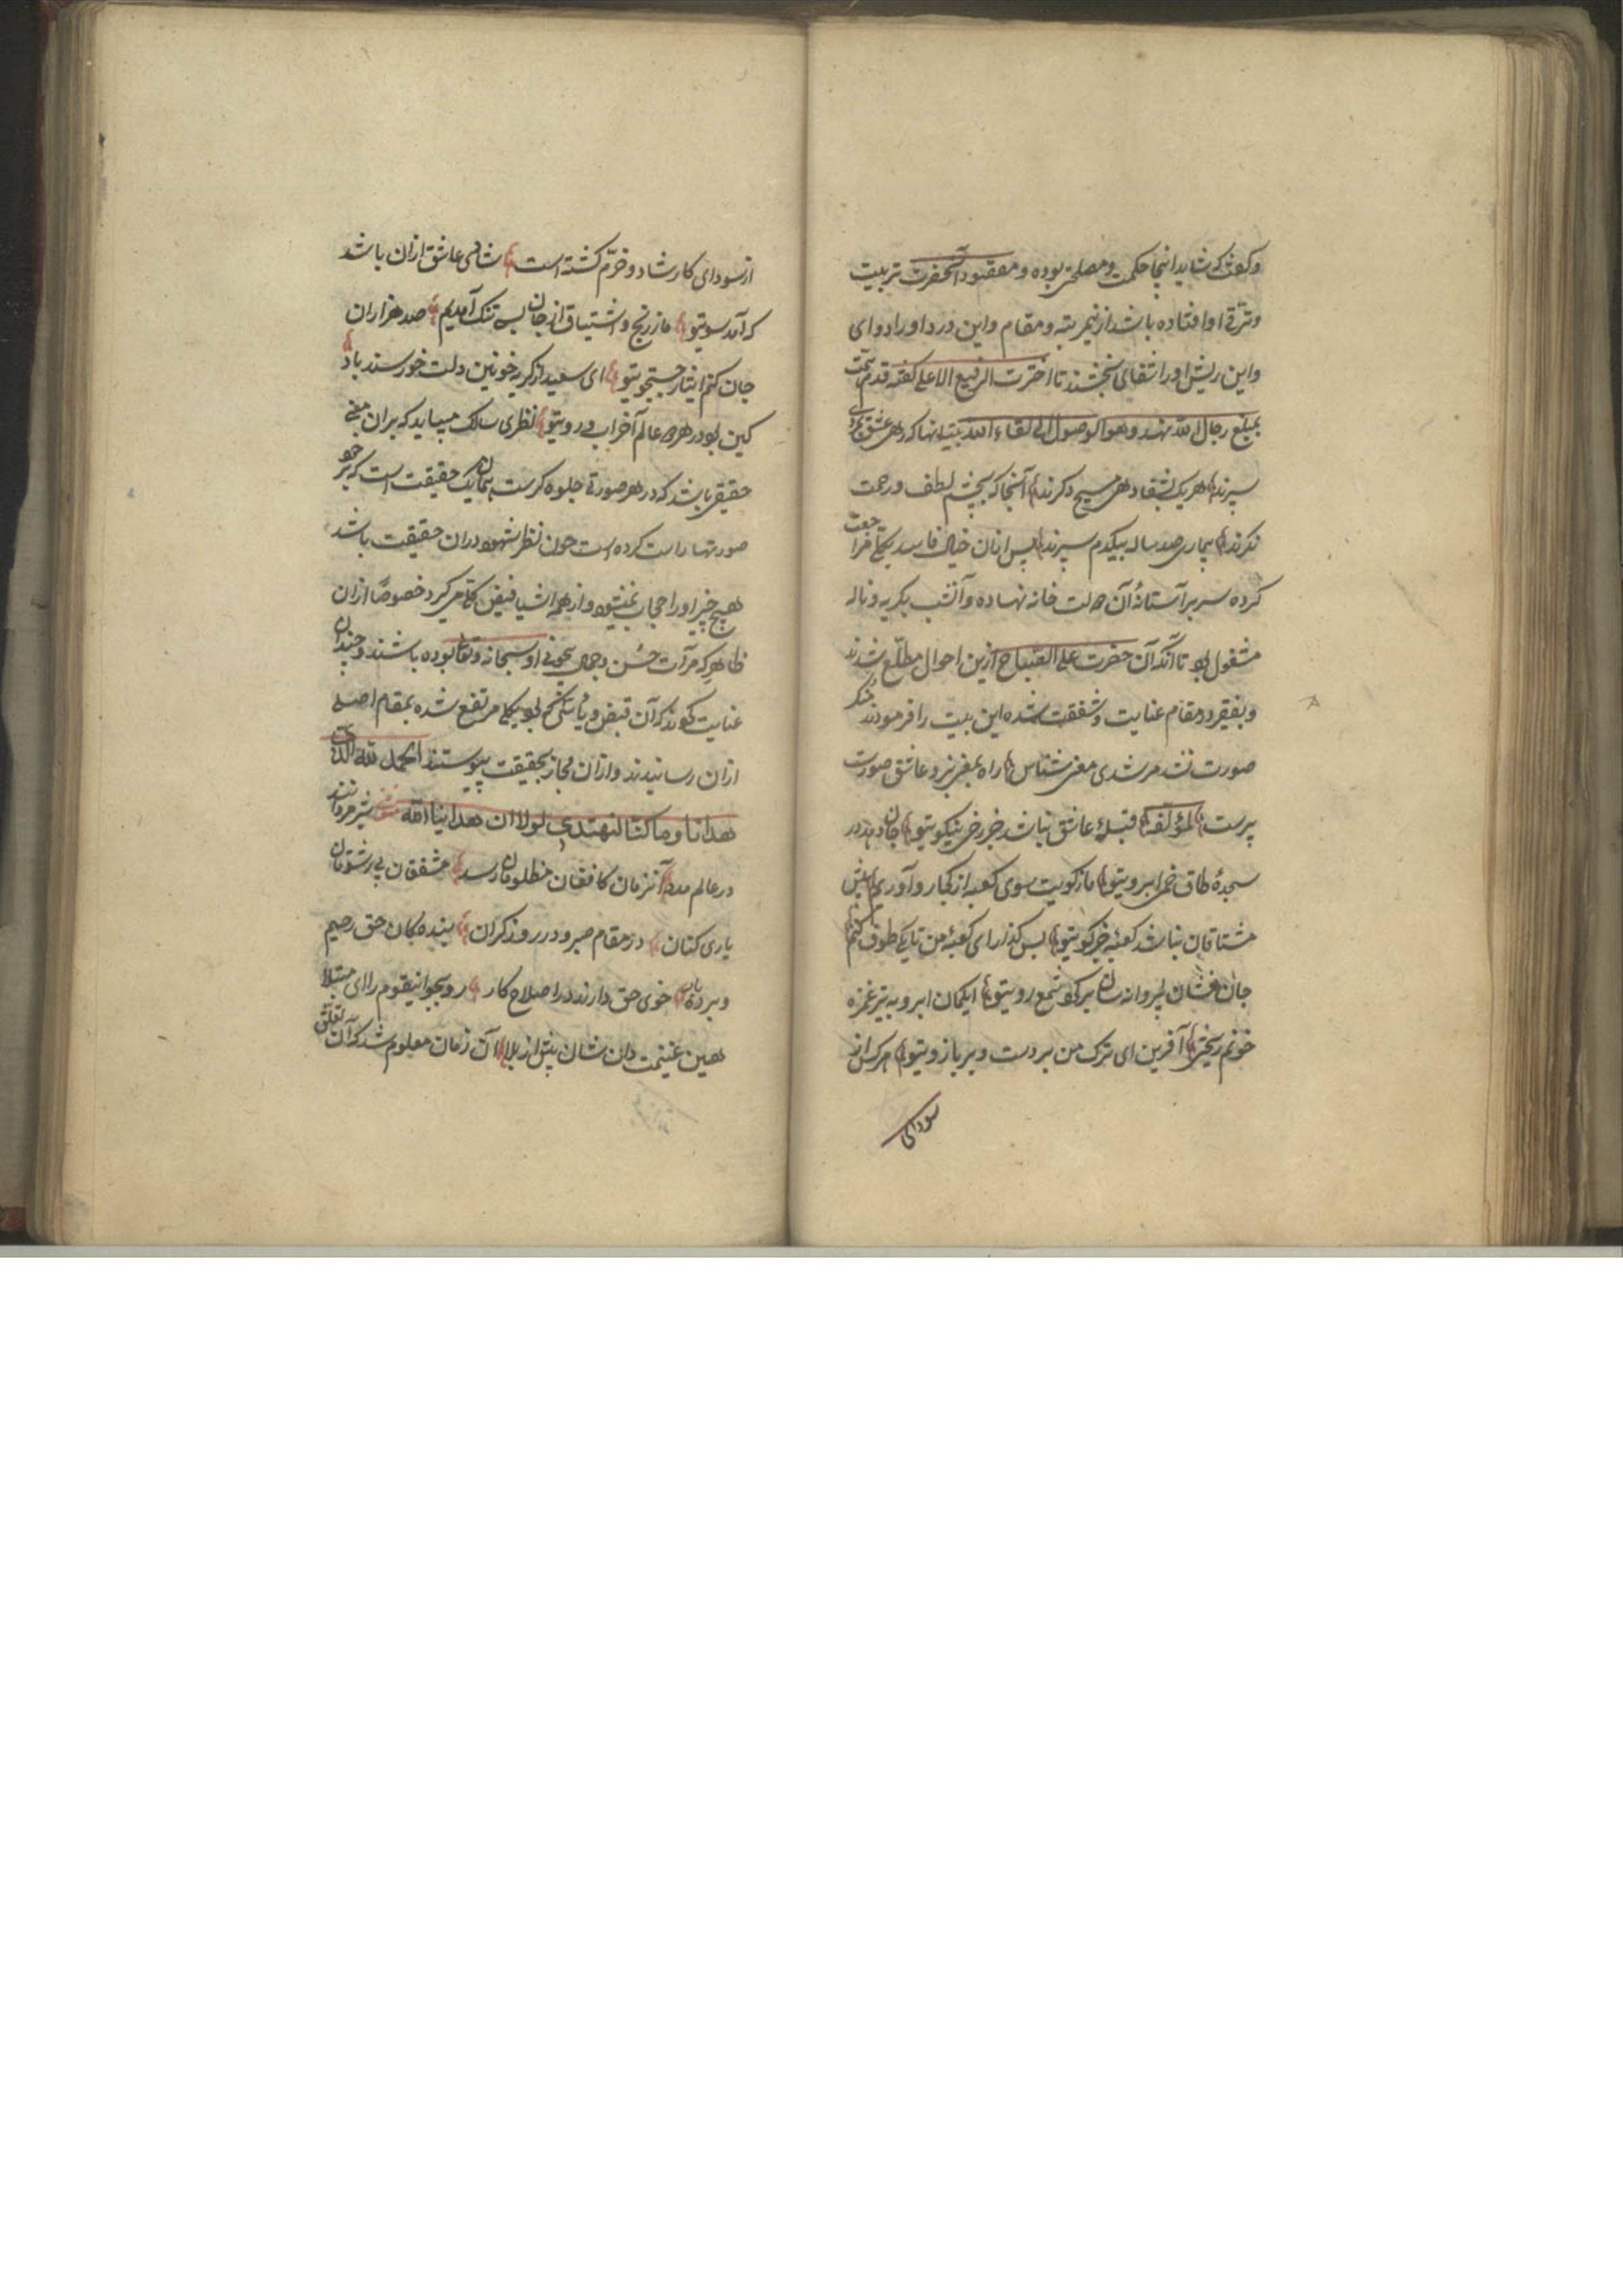 و گفتند که شاید اینجا حکمت و مصلحتی بوده و مقصود آنحضرت تربیت
و ترقی او افتاده باشد ازین مرتبه و مقام و این درد او را دوای
و این ریش او را شفای بخشند تا اخترت الرفیع الاعلی گفته قدم همت
بمبلغ رجال الله نهند و هو الوصول الی لقاء الله بیت آنها که ره عشق
سپرند هر یک بشفا دهی مسیح دگرند آنجا که بچشم لطف و رحمت
نگرند بیماری صد ساله بیکدم سپرند پس ازان خیال فاسد بکلی مراجعت
کرده سر بر آستانهٔ آن دولت خانه نهاده و آنشب بگریه و ناله
مشغول بود تا آنکه آن حضرت علی الصباح ازین احوال مطلع شدند
و بفقیر در مقام عنایت و شفقت شده این بیت را فرمودند
صورت نشد مرشدی معنی شناس راه بمعنی نبرد عاشق صورت
پرست لمؤلفه قبلهٔ عاشق نباشد جز رخ نیکوی تو جان دهد در
سجدهٔ طاق خم ابروی تو ما ز کویت سوی کعبه از کجا رو آوریم پیش
مشتاقان نباشد کعبه جز کوی تو بس گذار ای کعبهٔ من تا یکی طوف کنم
جان فشان پروانه سان بر گرد شمع روی تو ای کمان ابرو به تیر غمزه
خونم ریختی آفرین ای ترک من بر دست و بر بازوی تو هرکس از
سودای
از سودای کار شاد و خرّم گشته است شادی عاشق ازان باشد
که آمد سوی تو ما ز رنج و اشتیاق از جان به تنگ آمدیم صد هزاران
جان کنم ایثار جستجوی تو ای سعید از گریه خونین دلت خورسند باد
کین بود در هر دو عالم آخر آب روی تو نظری سالک میباید که بران معنی
حقیقی باشد که در هر صورتی جلوه گرست همان یک حقیقت است که بر خود
صورتها راست کرده است چون نظر شهود دران حقیقت باشد
هیچ چیز او را حجاب نمیشود و از همه اشیا فیض کلی میگیرد خصوصاً ازان
ظاهر که مرآت حسن و جمال بیچونی او سبحانه و تعالی بوده باشند و چندان
عنایت کردند که آن قبض و یأسیکه بود بکلی مرتفع شده بمقام اصلی
ازان رسانیدند و ازان مجاز بحقیقت پیوستند الحمد لله الذی
هدانا و ما کنا لنهتدی لولا ان هدانا الله مثنوی شیر مردانند
در عالم مدد آنزمان کافغان مظلومان رسد مشفقان بی رشوتان
یاری کنان در مقام صبر و در روز گران بنده گان حق رحیم
و بردبار خوی حق دارند در اصلاح کار رو بجو این قوم را ای مبتلا
هین غنیمت دان شان پیش از بلا آن زمان معلوم شد که آن تعلق